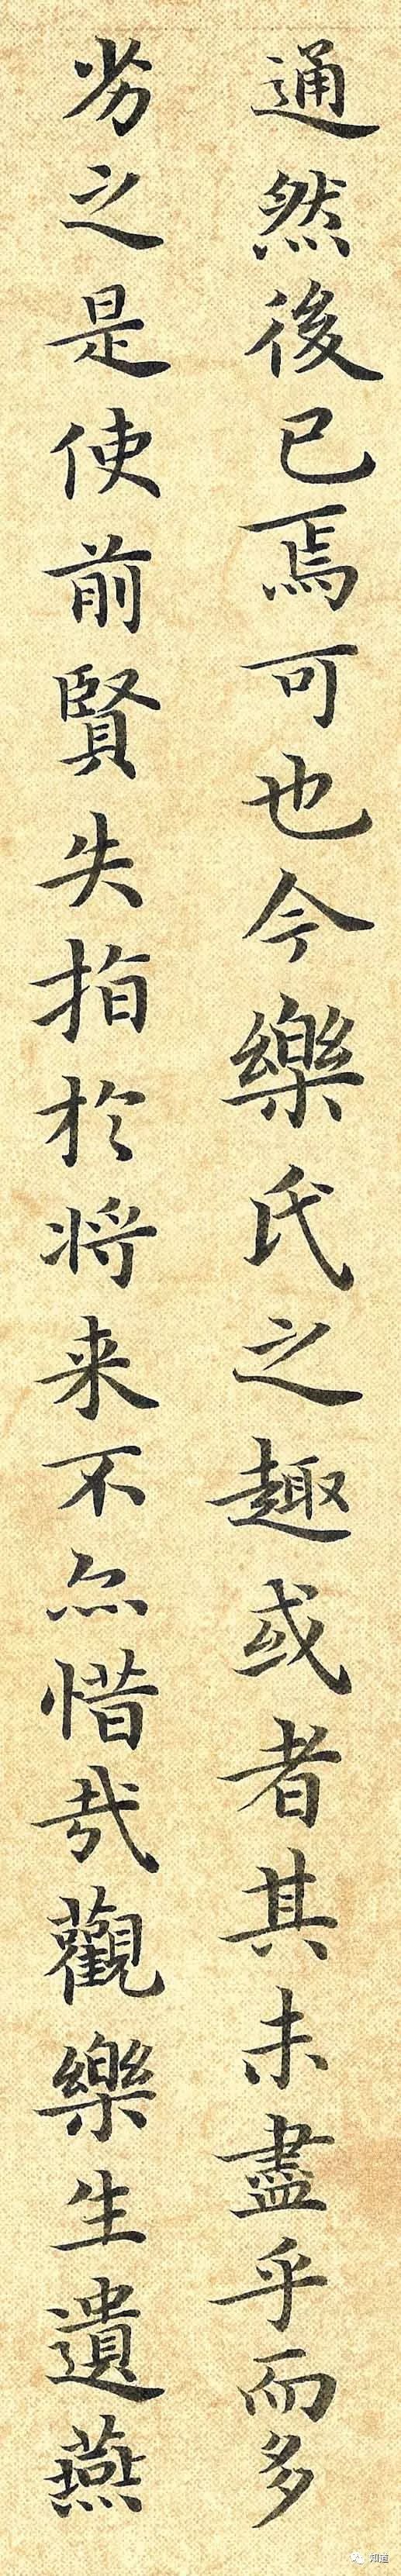 通然後已焉可也今樂氏之趣或者其未盡乎而多
劣之是使前賢失指於将来不亦惜哉觀樂生遺燕
知道